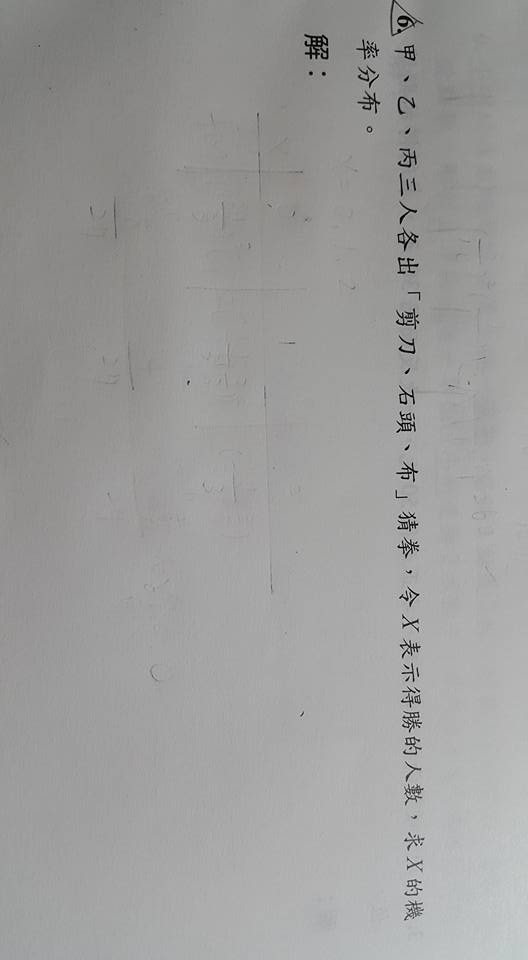 6. 甲、乙、丙三人各出「剪刀、石頭、布」猜拳，令X表示得勝的人數，求X的機
率分布。
解：